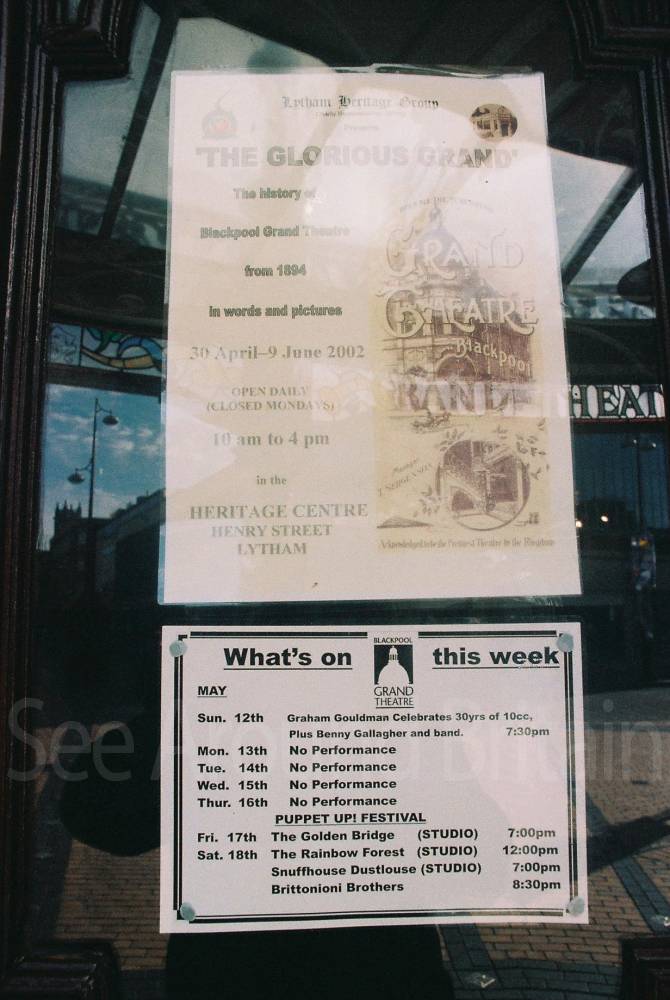 Lytham Heritage Group
Presents
'THE GLORIOUS GRAND'
The history of
Blackpool Grand Theatre
from 1894
in words and pictures
30 April–9 June 2002
OPEN DAILY
(CLOSED MONDAYS)
10 am to 4 pm
in the
HERITAGE CENTRE
HENRY STREET
LYTHAM
GRAND
THEATRE
Blackpool
Manager
T SERGENSON
Acknowledged to be the Prettiest Theatre in the Kingdom
HEAT
What's on
BLACKPOOL
GRAND
THEATRE
this week
MAY
Sun. 12th Graham Gouldman Celebrates 30yrs of 10cc,
Plus Benny Gallagher and band. 7:30pm
Mon. 13th No Performance
Tue. 14th No Performance
Wed. 15th No Performance
Thur. 16th No Performance
PUPPET UP! FESTIVAL
Fri. 17th The Golden Bridge (STUDIO) 7:00pm
Sat. 18th The Rainbow Forest (STUDIO) 12:00pm
Snuffhouse Dustlouse (STUDIO) 7:00pm
Brittonioni Brothers 8:30pm
See Around Britain